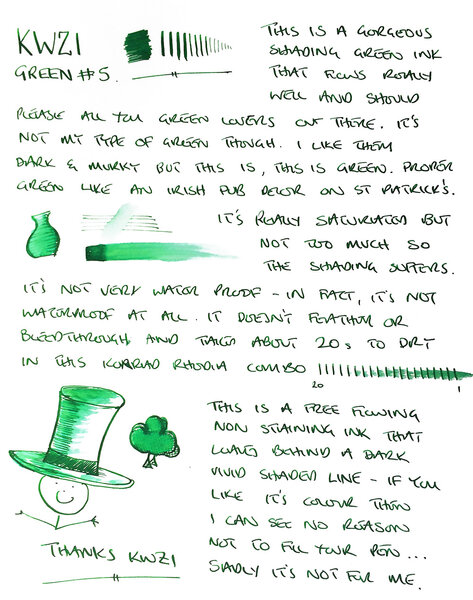 KWZI
GREEN #5.
THIS IS A GORGEOUS
SHADING GREEN INK
THAT FLOWS REALLY
WELL AND SHOULD
PLEASE ALL YOU GREEN LOVERS OUT THERE. IT'S
NOT MY TYPE OF GREEN THOUGH. I LIKE THEM
DARK & MURKY BUT THIS IS, THIS IS GREEN. PROPER
GREEN LIKE AN IRISH PUB DECOR ON ST PATRICK'S.
IT'S REALLY SATURATED BUT
NOT TOO MUCH SO
THE SHADING SUFFERS.
IT'S NOT VERY WATER PROOF - IN FACT, IT'S NOT
WATERPROOF AT ALL. IT DOESN'T FEATHER OR
BLEEDTHROUGH AND TAKES ABOUT 20s TO DRY
IN THIS KONRAD RHODIA COMBO
20 1
THIS IS A FREE FLOWING
NON STAINING INK THAT
LEAVES BEHIND A DARK
VIVID SHADED LINE - IF YOU
LIKE IT'S COLOUR THEN
I CAN SEE NO REASON
NOT TO FILL YOUR PEN ...
SADLY IT'S NOT FOR ME.
THANKS KWZI